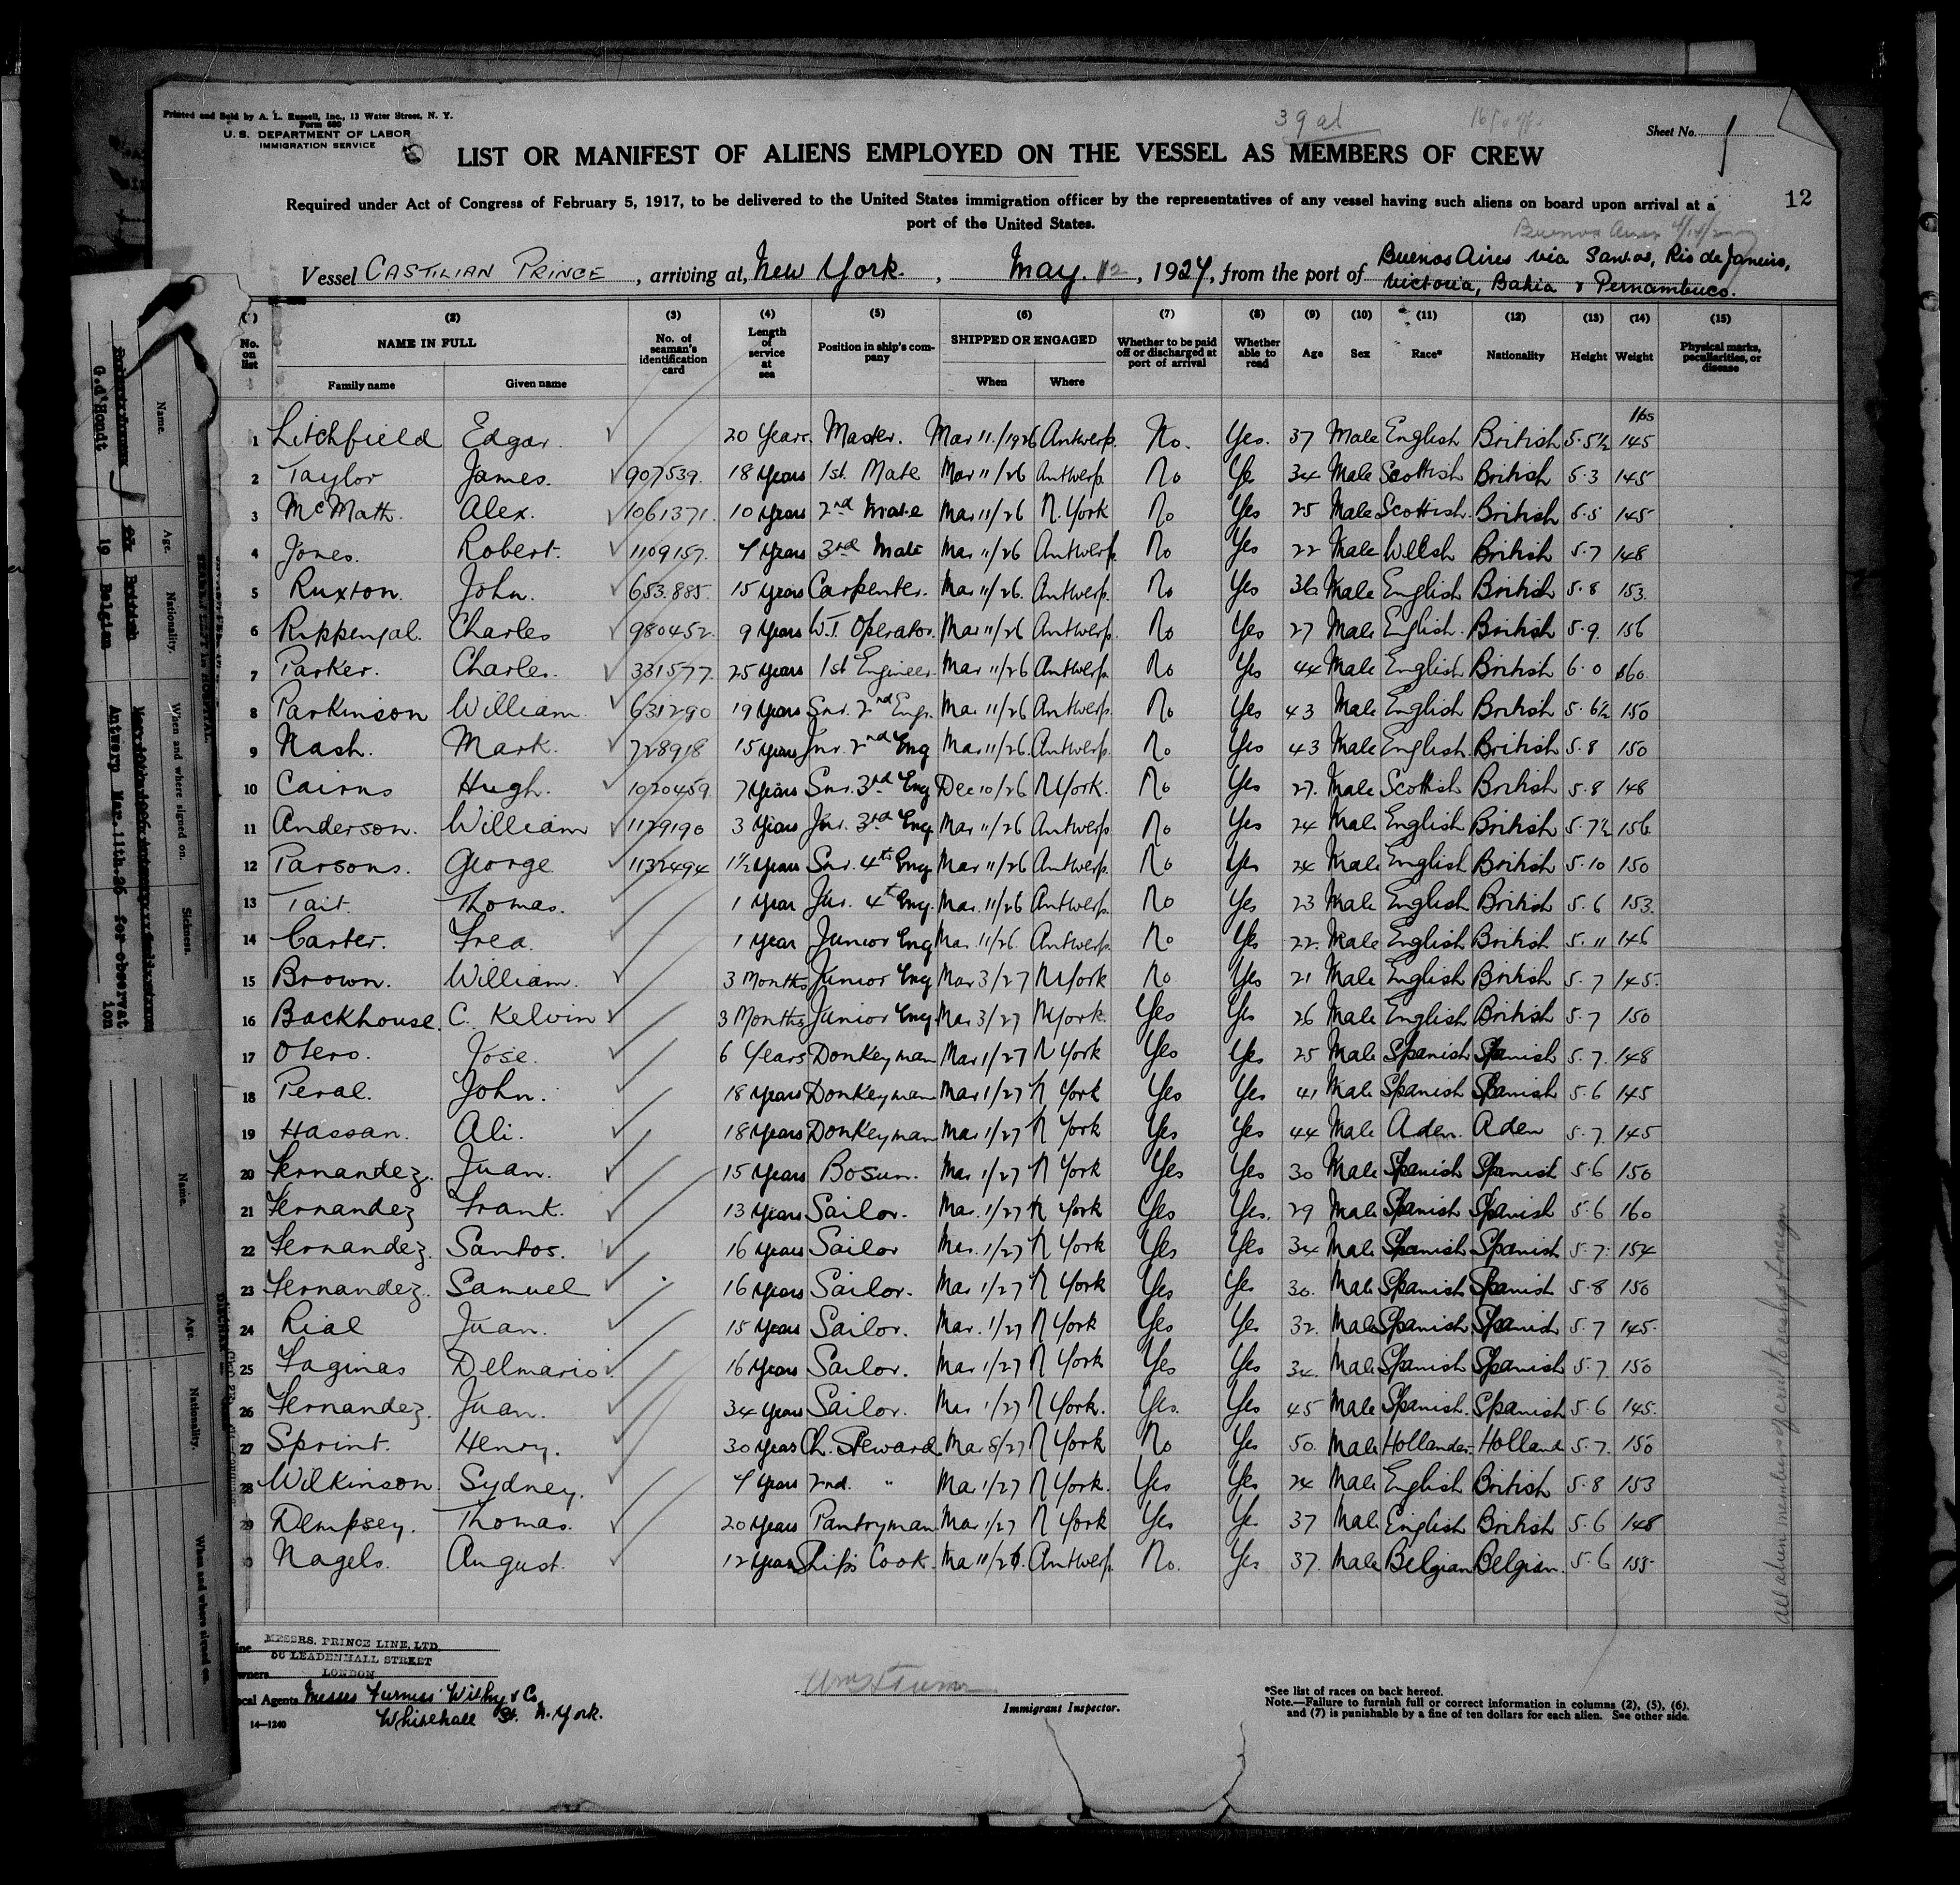 Printed and Sold by A. L. Russell, Inc., 13 Water Street, N. Y.
Form 680
U. S. DEPARTMENT OF LABOR
IMMIGRATION SERVICE
39 al
Sheet No. 1
LIST OR MANIFEST OF ALIENS EMPLOYED ON THE VESSEL AS MEMBERS OF CREW
12
Required under Act of Congress of February 5, 1917, to be delivered to the United States immigration officer by the representatives of any vessel having such aliens on board upon arrival at a
port of the United States.
Buenos Aires
Vessel CASTILIAN PRINCE, arriving at New York., May. 12, 1927, from the port of Buenos Aires via Santos, Rio de Janeiro,
Victoria, Bahia & Pernambuco.
(2) (3) (4) (5) (6) (7) (8) (9) (10) (11) (12) (13) (14) (15)
No. on list NAME IN FULL No. of seaman's identification card Length of service at sea Position in ship's company SHIPPED OR ENGAGED Whether to be paid off or discharged at port of arrival Whether able to read Age Sex Race* Nationality Height Weight Physical marks, peculiarities, or disease
Family name Given name When Where
165
1 Litchfield Edgar. 20 Years. Master. Mar 11./1926 Antwerp. No. Yes. 37 Male English British 5.5½ 145
2 Taylor James. 907539. 18 Years 1st. Mate Mar 11/26 Antwerp. No Yes 34 Male Scottish British 5.3 145
3 McMath. Alex. 1061371. 10 Years 2nd Mate Mar 11/26 N. York No Yes 25 Male Scottish. British 5.5 145
4 Jones. Robert. 1109157. 4 Years 3rd Mate Mar 11/26 Antwerp No Yes 22 Male Welsh British 5.7 148
5 Ruxton. John. 653.885. 15 Years Carpenter. Mar 11/26. Antwerp. No Yes 36 Male English British 5.8 153.
6 Rippengal. Charles 980452. 9 Years W.T. Operator. Mar 11/26 Antwerp. No Yes 27 Male English. British 5.9. 156
7 Parker. Charles. 331577 25 Years 1st Engineer. Mar 11/26 Antwerp. No Yes 44 Male English British 6.0 160.
8 Parkinson William 631290 19 Years Snr. 2nd Engr. Mar 11/26 Antwerp. No Yes 43 Male English British 5.6½ 150
9 Nash. Mark. 728918 15 Years Jnr. 2nd Eng Mar 11/26. Antwerp. No Yes 43 Male English. British 5.8 150
10 Cairns Hugh. 1020459 7 Years Snr. 3rd Eng Dec 10/26 N York. No Yes 27. Male Scottish British 5.8 148
11 Anderson. William 1129190 3 Years Jnr. 3rd Eng. Mar 11/26 Antwerp. No Yes 24 Male English British 5.7½ 156
12 Parsons. George 1132494 1½ Years Snr. 4th Eng Mar 11/26 Antwerp. No Yes 24 Male English British 5.10 150
13 Tait. Thomas. 1 Year Jnr. 4th Eng. Mar. 11/26 Antwerp. No Yes 23 Male English British 5.6 153.
14 Carter. Fred. 1 Year Junior Eng Mar 11/26. Antwerp. No Yes 22. Male English British 5.11 146
15 Brown. William. 3 Months Junior Eng Mar 3/27 N York No Yes 21 Male English British 5.7 145.
16 Backhouse. C. Kelvin 3 Months Junior Eng. Mar 3/27 N York. Yes Yes 26 Male English British 5.7 150
17 Otero. Jose. 6 Years Donkeyman Mar 1/27 N York Yes Yes 25 Male Spanish Spanish 5.7. 148
18 Peral. John. 18 Years Donkeyman Mar 1/27 N York Yes Yes 41 Male Spanish Spanish 5.6 145
19 Hassan. Ali. 18 Years Donkeyman Mar 1/27 N York Yes Yes 44 Male Aden. Aden 5.7. 145
20 Fernandez. Juan. 15 Years Bosun. Mar 1/27 N York Yes Yes 30 Male Spanish Spanish 5.6 150
21 Fernandez Frank. 13 Years Sailor. Mar. 1/27 N York Yes Yes. 29 Male Spanish Spanish 5.6 160
22 Fernandez. Santos. 16 Years Sailor Mar. 1/27 N York Yes Yes 34 Male Spanish Spanish 5.7. 154
23 Fernandez. Samuel 16 Years Sailor. Mar 1/27 N York Yes Yes 30. Male Spanish Spanish 5.8 150
24 Rial Juan. 15 Years Sailor. Mar. 1/27 N York Yes Yes 32. Male Spanish. Spanish 5.7 145.
25 Faginas Delmario. 16 Years Sailor. Mar 1/27 N York Yes Yes 34. Male Spanish Spanish 5.7. 150
26 Fernandez. Juan. 34 Years Sailor. Mar 1/27 N York. Yes. Yes 45 Male Spanish. Spanish 5.6 145.
27 Sprint. Henry. 30 Years Ch. Steward. Mar 8/27 N York No Yes 50. Male Hollander. Holland 5.7. 150
28 Wilkinson. Sydney. 4 Years 2nd. " Mar 1/27 N York. Yes Yes 24 Male English British 5.8 153
29 Dempsey. Thomas. 20 Years Pantryman Mar 1/27 N York Yes Yes 37 Male English British 5.6 148
Nagels. August. 12 Years Ships Cook. Mar 11/26. Antwerp. No. Yes 37. Male Belgian Belgian. 5.6 155
MESSRS. PRINCE LINE, LTD.
LEADENHALL STREET
LONDON
Local Agents Messrs Furness Withy & Co
Whitehall St. N. York.
14—1240
Immigrant Inspector.
*See list of races on back hereof.
Note.—Failure to furnish full or correct information in columns (2), (5), (6),
and (7) is punishable by a fine of ten dollars for each alien. See other side.
Name. Age. Nationality. When and where signed on. Sickness.
G. d'Hondt 19 Belgian Antwerp Mar.11th.26 for observation
Name. Age. Nationality. When and where signed on.